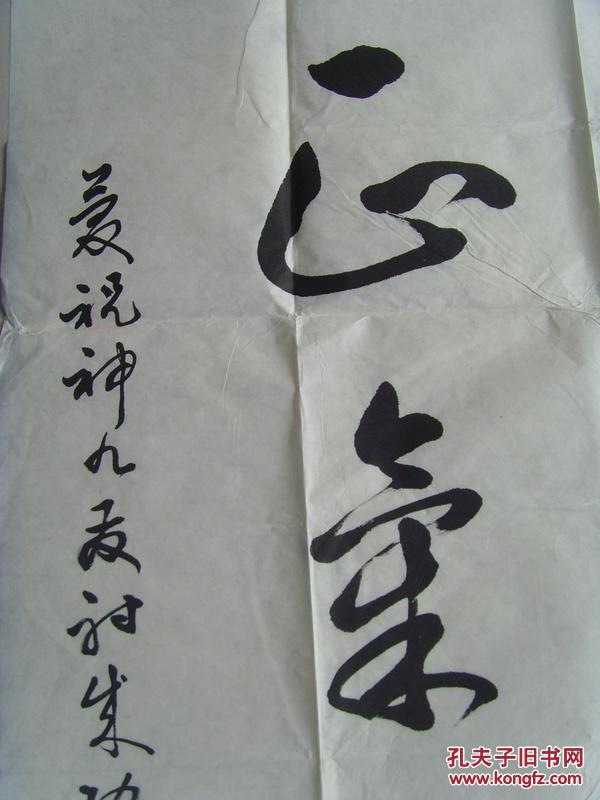 正氣
慶祝神九发射成功
孔夫子旧书网
www.kongfz.com